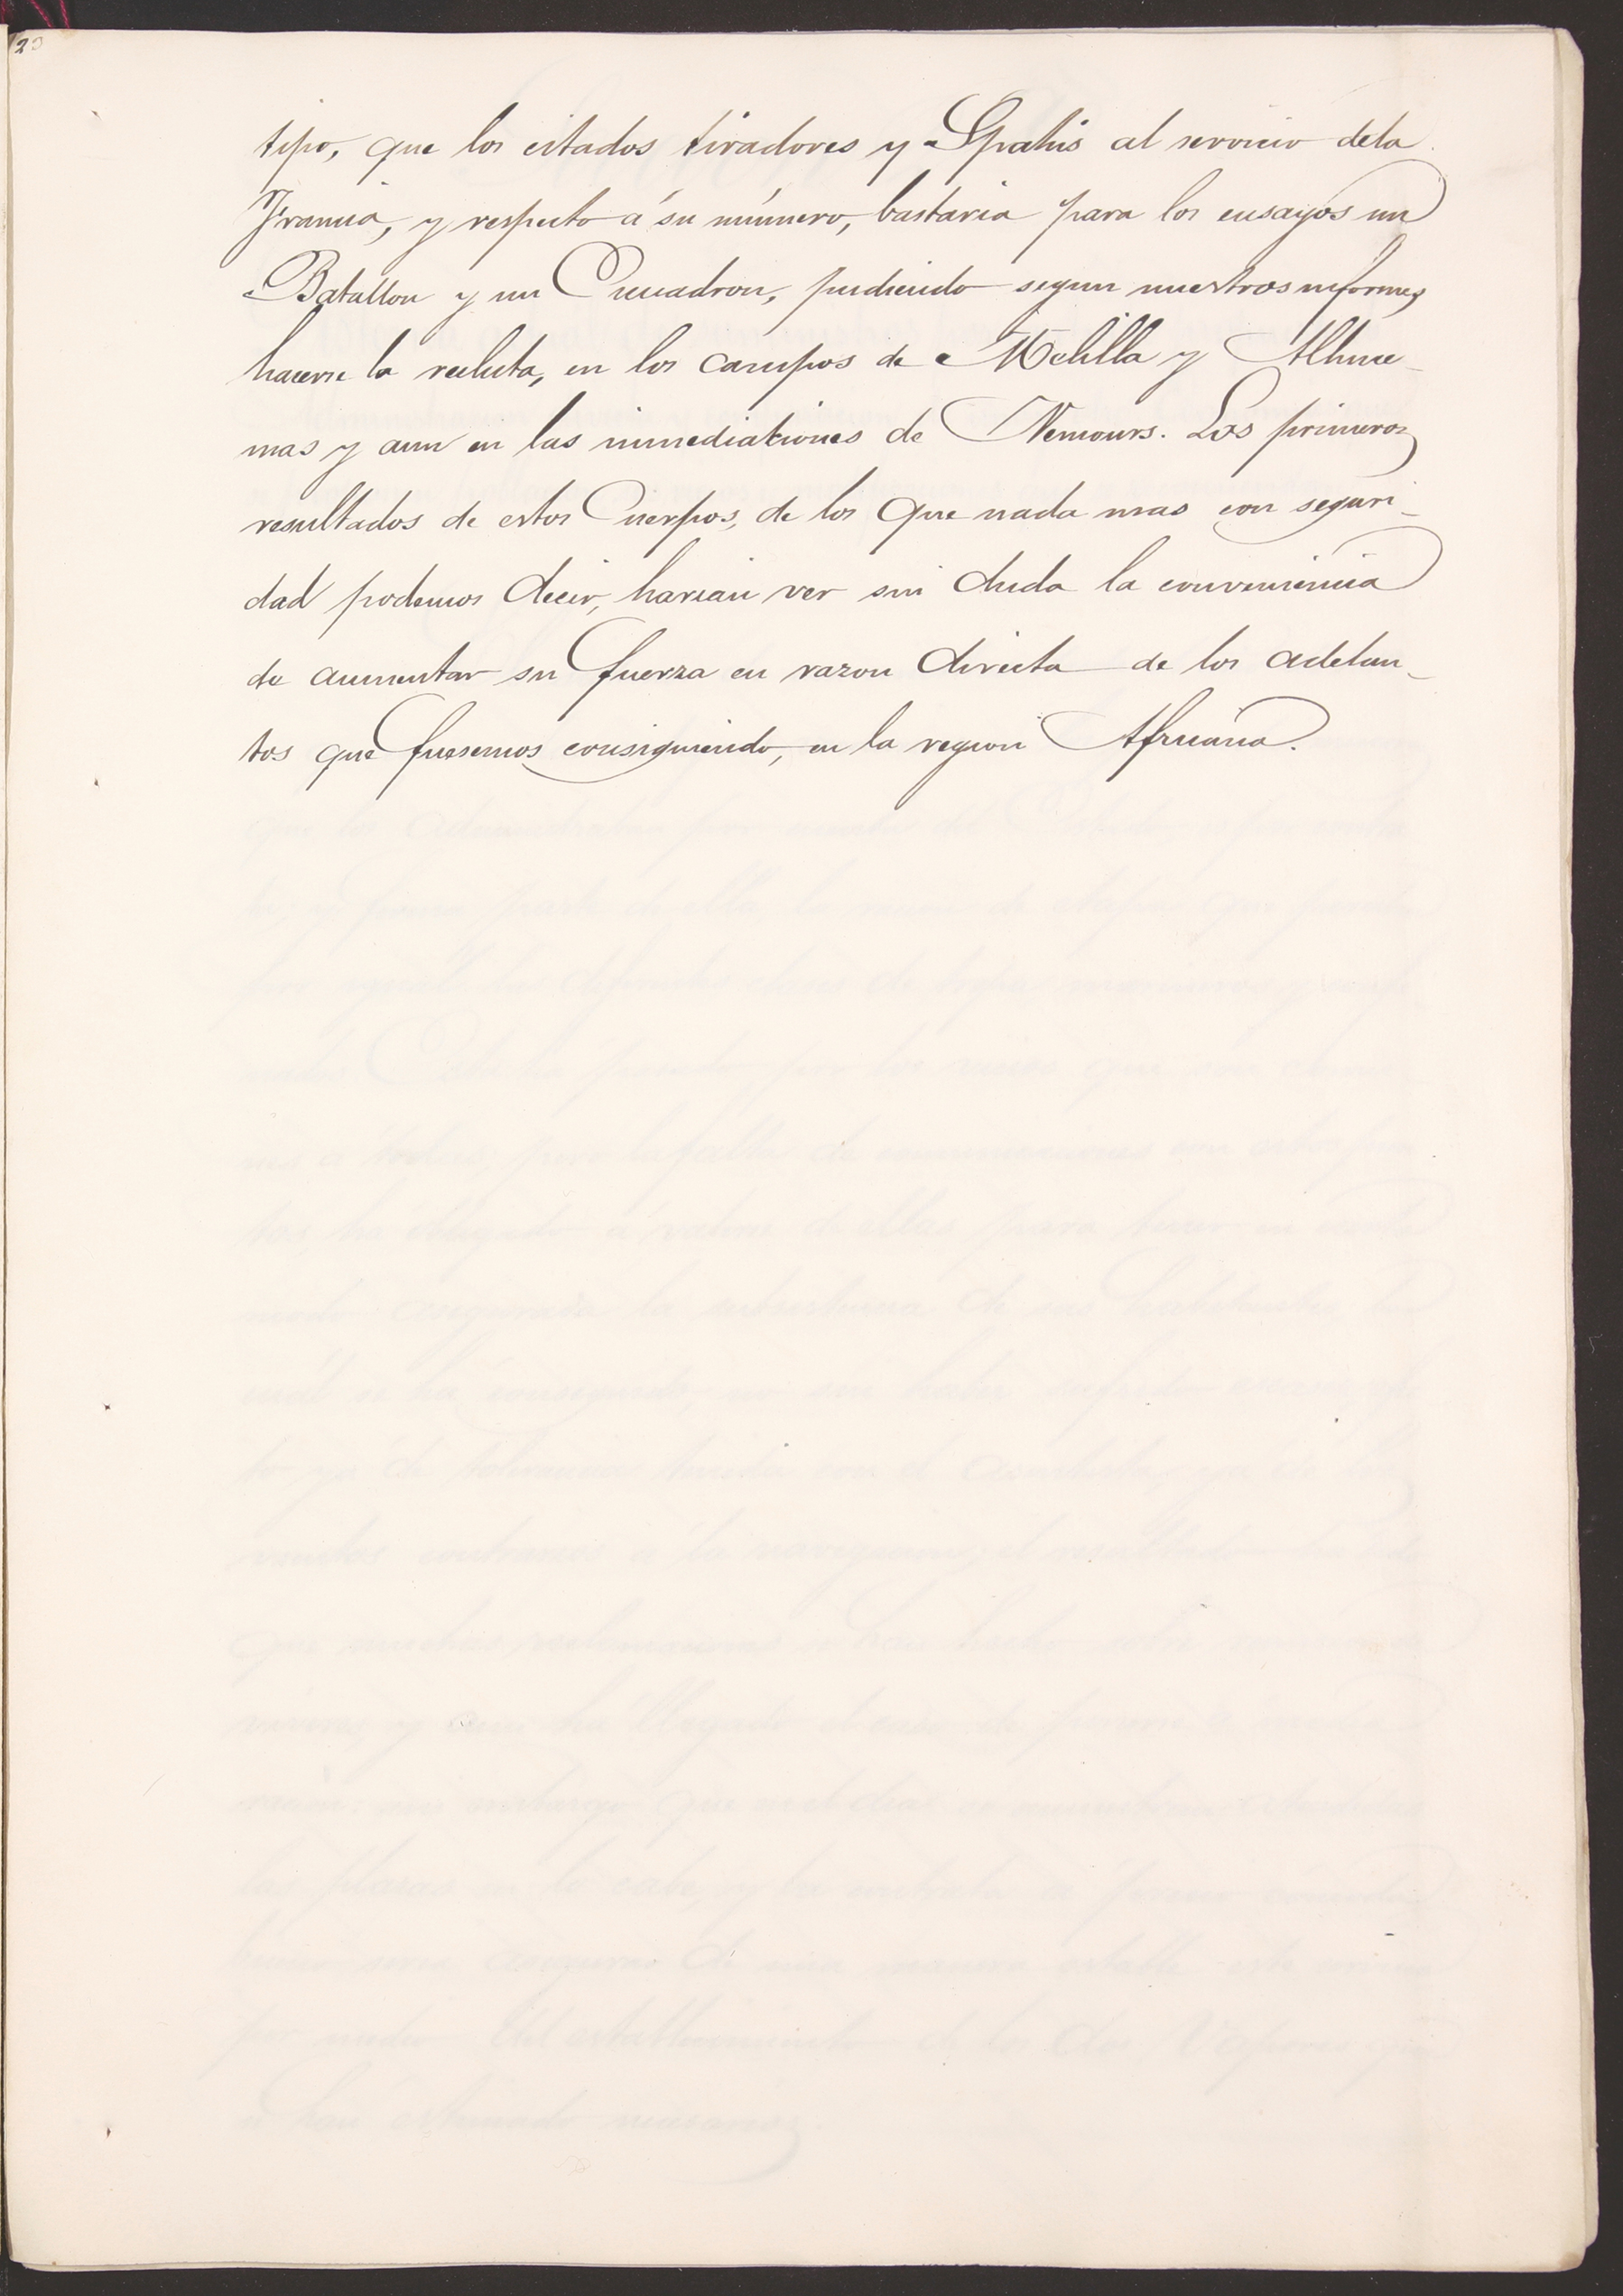 tipo, que los citados tiradores y Spahis al servicio dela
Francia, y respecto á su número, bastaria para los ensayos un
Batallon y un Escuadron, pudiendo segun nuestros informes
hacerse la recluta, en los campos de Melilla y Alhuce-
mas y aun en las inmediationes de Nemours. Los primeros
resultados de estos Cuerpos, de los que nada mas con seguri-
dad podemos decir, harian ver sin duda la conveniencia
de aumentar su fuerza en razon directa de los adelan-
tos que fuesemos consiguiendo, en la region Africana.